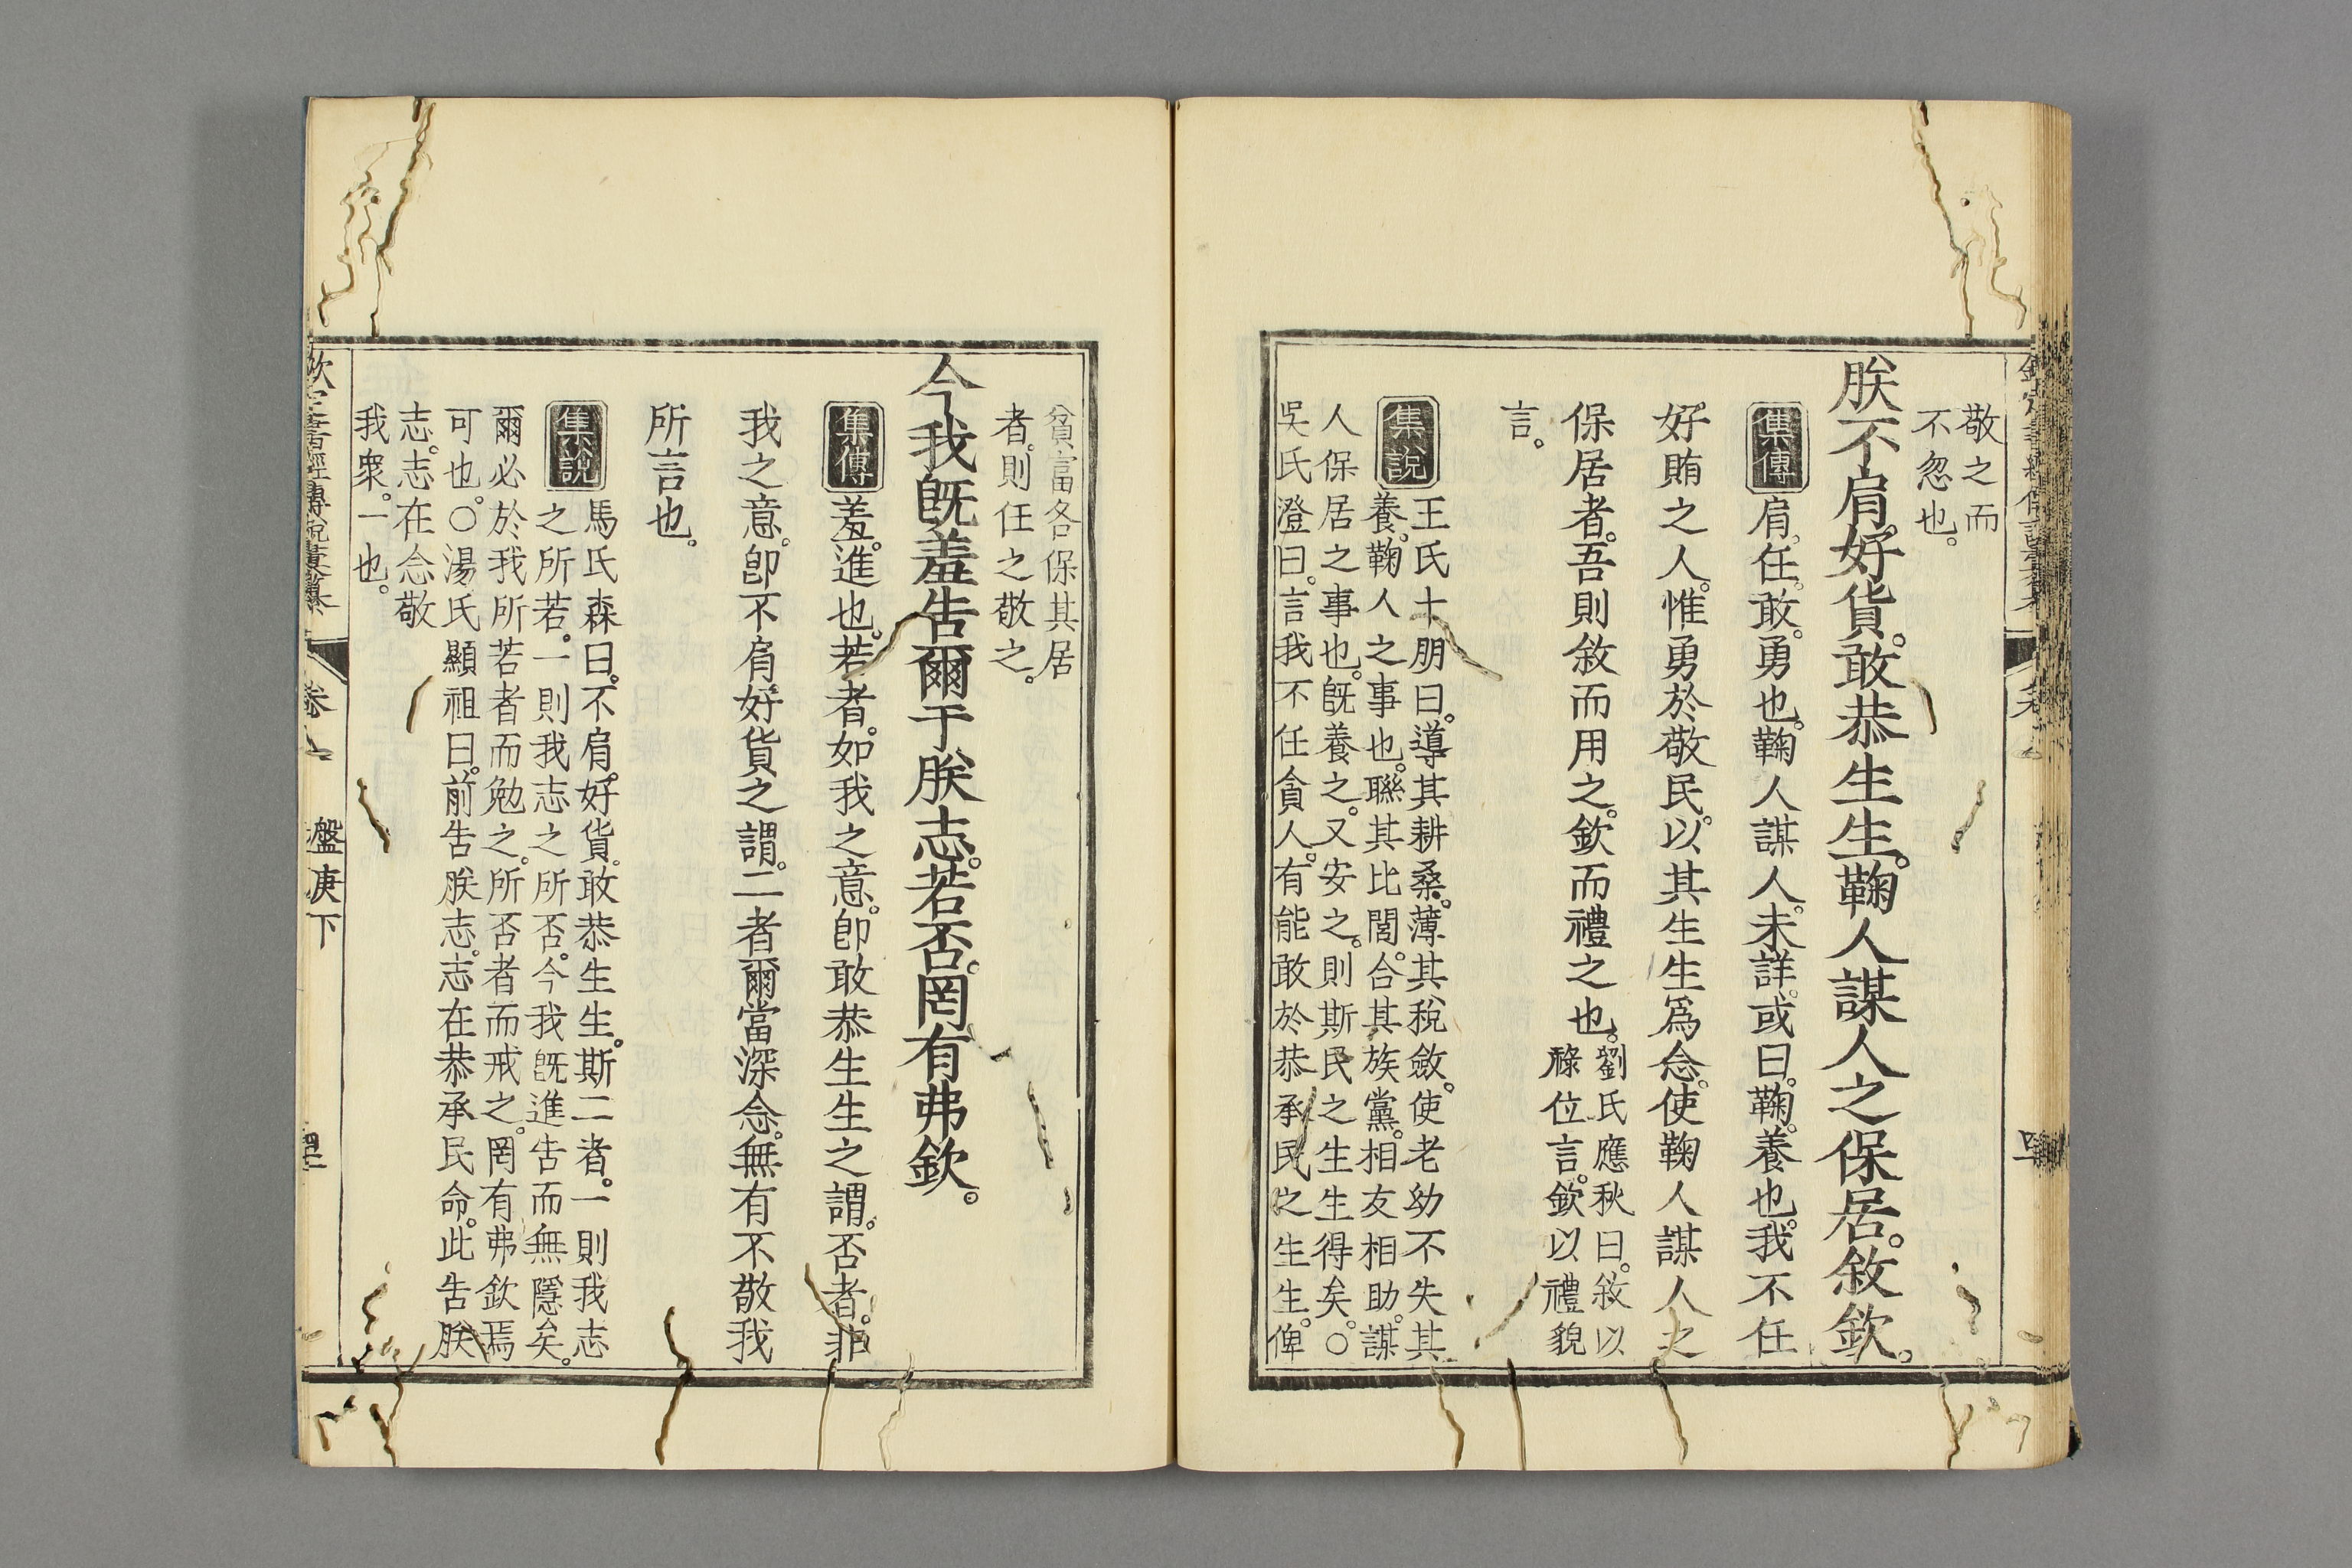 敬之而
不忽也。
朕不肩好貨。敢恭生生。鞠人謀人之保居。敘欽。
集傳
肩。任。敢。勇也。鞠人謀人。未詳。或曰。鞠。養也。我不任
好賄之人。惟勇於敬民。以其生生爲念。使鞠人謀人之
保居者。吾則敘而用之。欽而禮之也。
劉氏應秋曰。敘以
祿位言。欽以禮貌
言。
集說
王氏十朋曰。導其耕桑。薄其稅斂。使老幼不失其
養。鞠人之事也。聯其比閭。合其族黨。相友相助。謀
人保居之事也。旣養之。又安之。則斯民之生生得矣。○
吳氏澄曰。言我不任貪人。有能敢於恭承民之生生。俾
貧富各保其居
者。則任之敬之。
今我旣羞告爾于朕志。若否。罔有弗欽。
集傳
羞。進也。若者。如我之意。卽敢恭生生之謂。否者。非
我之意。卽不肩好貨之謂。二者爾當深念。無有不敬我
所言也。
集說
馬氏森曰。不肩好貨。敢恭生生。斯二者。一則我志
之所若。一則我志之所否。今我旣進告而無隱矣。
爾必於我所若者而勉之。所否者而戒之。罔有弗欽焉
可也。○湯氏顯祖曰。前告朕志。志在恭承民命。此告朕
志。志在念敬
我衆。一也。
欽定書經傳說彙纂
卷八
盤庚下